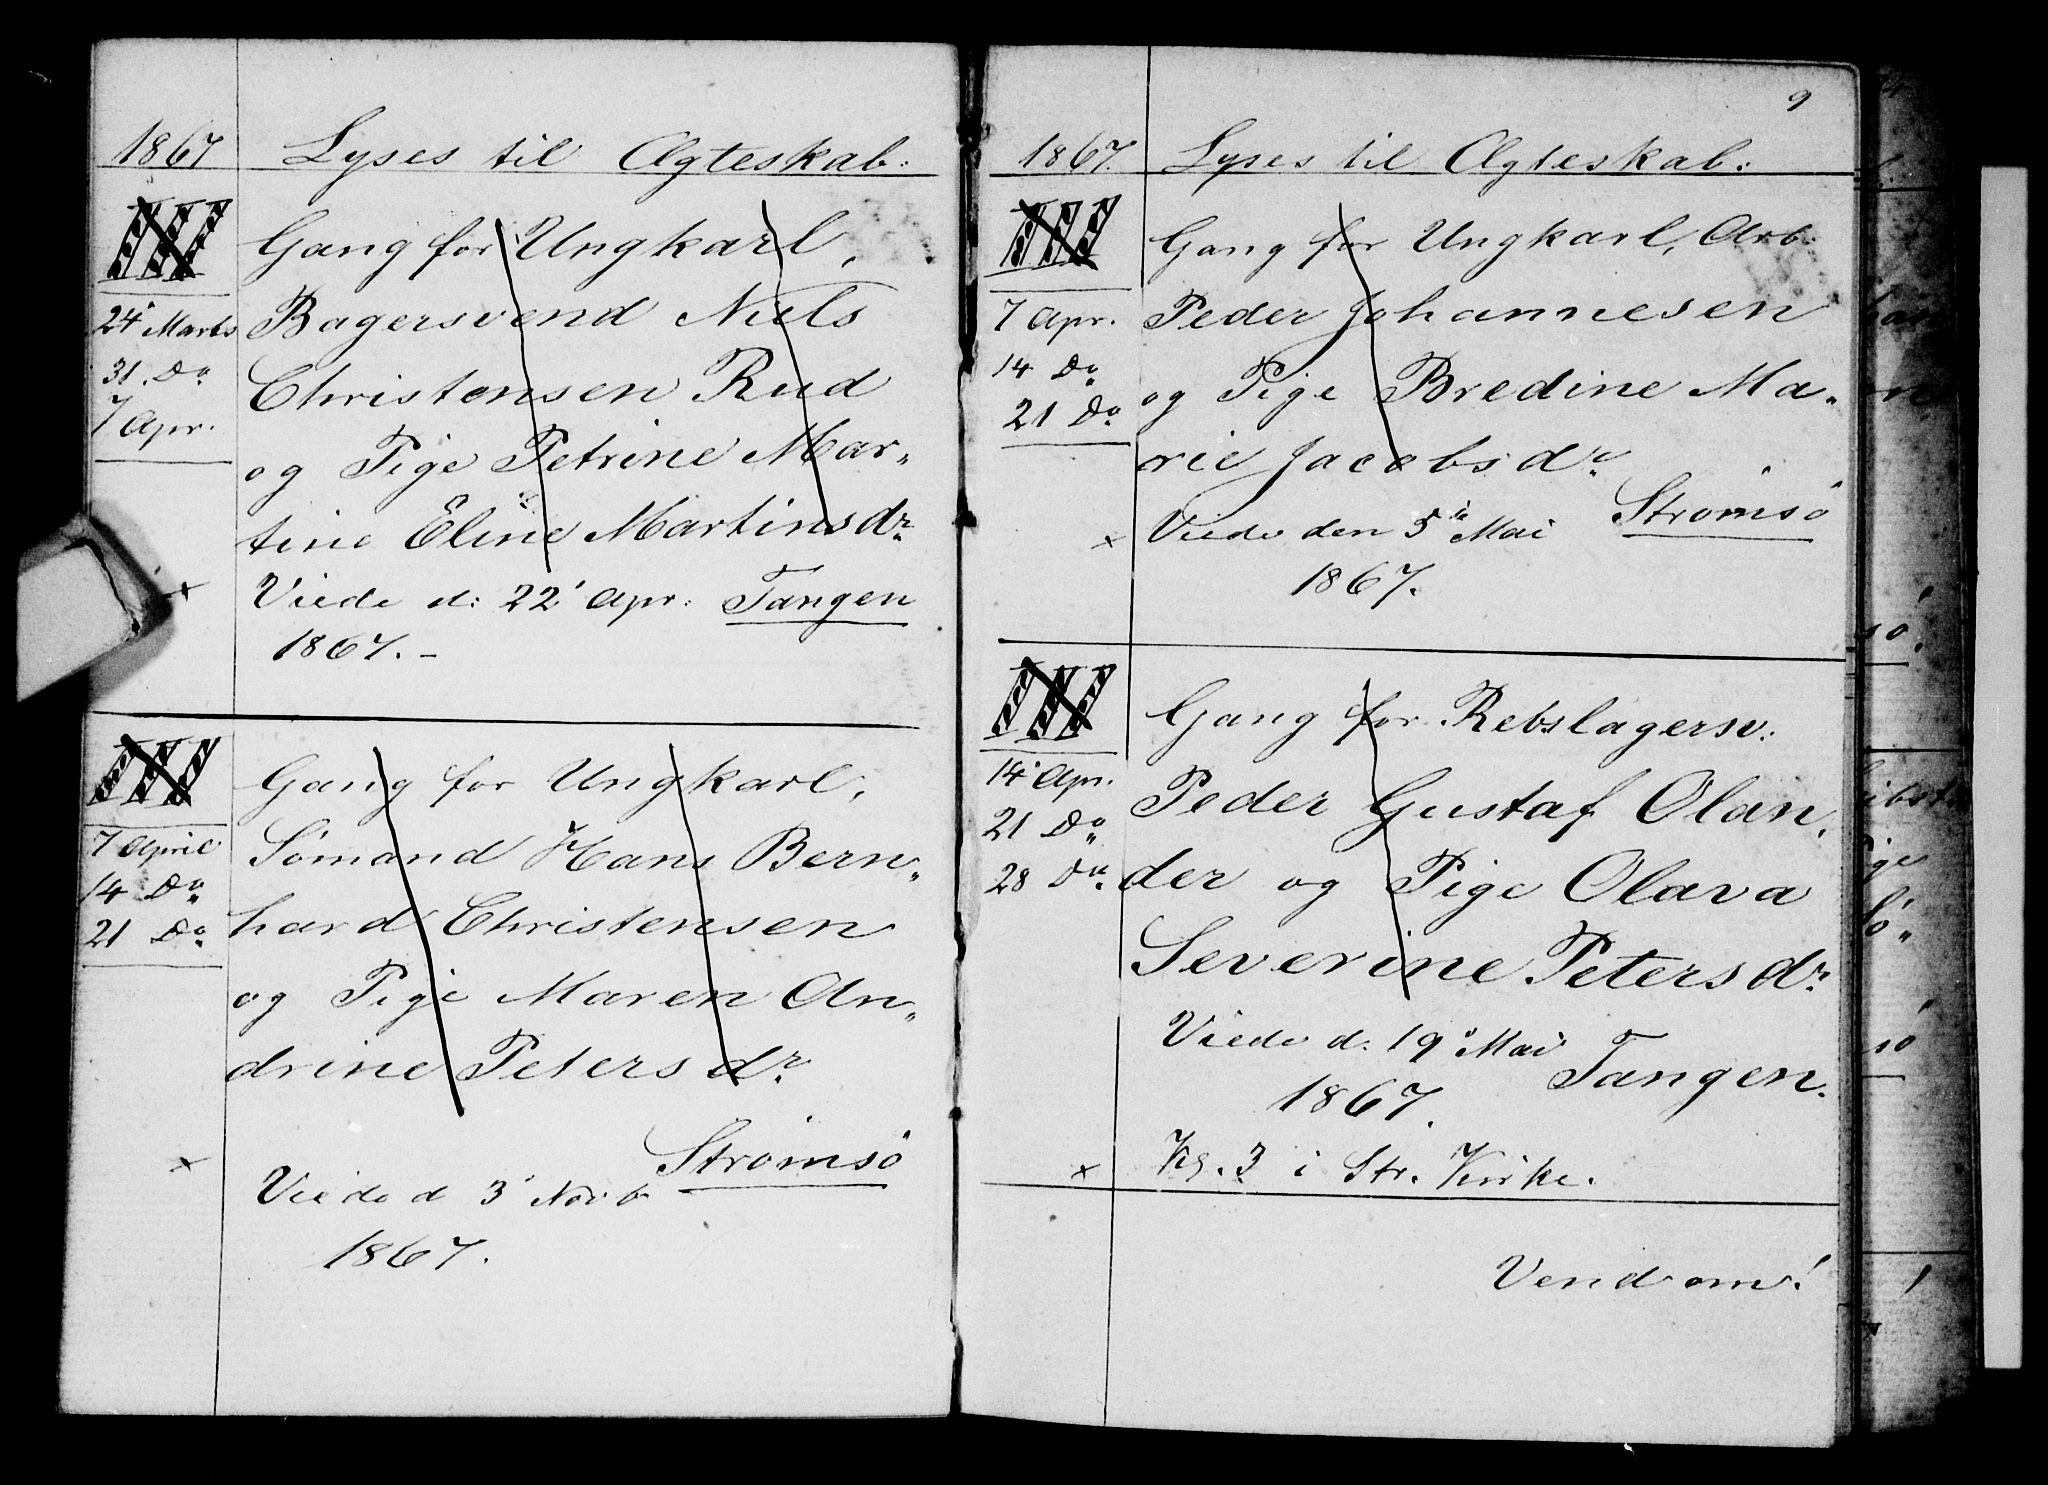 1867 Lyses til Ægteskab.
III Gang for Ungkarl,
24' Marts Bagersvend Niels
31. Do Christensen Rud
7 Apr. og Pige Petrine Mar„
tine Eline Martinsdr.
x Viede d: 22' Apr: Tangen
1867. –
III Gang for Ungkarl,
7 April Sömand Hans Bern„
14 Do hard Christensen
21 Do og Pige Maren An„
drine Petersdr.
Strömsö
x Viede d 3' Novb
1867.
9
1867. Lyses til Ægteskab:
III Gang for Ungkarl, Arb:
7 Apr. Peder Johannesen
14 Do og Pige Bredine Ma„
21 Do rie Jacobsdr.
Strömsö
x Viede den 5te Mai
1867.
III Gang for Rebslagersv:
14' Apr. Peder Gustaf Olan„
21 Do der og Pige Olava
28 Do Severine Petersdr.
Viede d. 19' Mai Tangen.
1867.
x Kl. 3 i Str. Kirke.
Vend om!